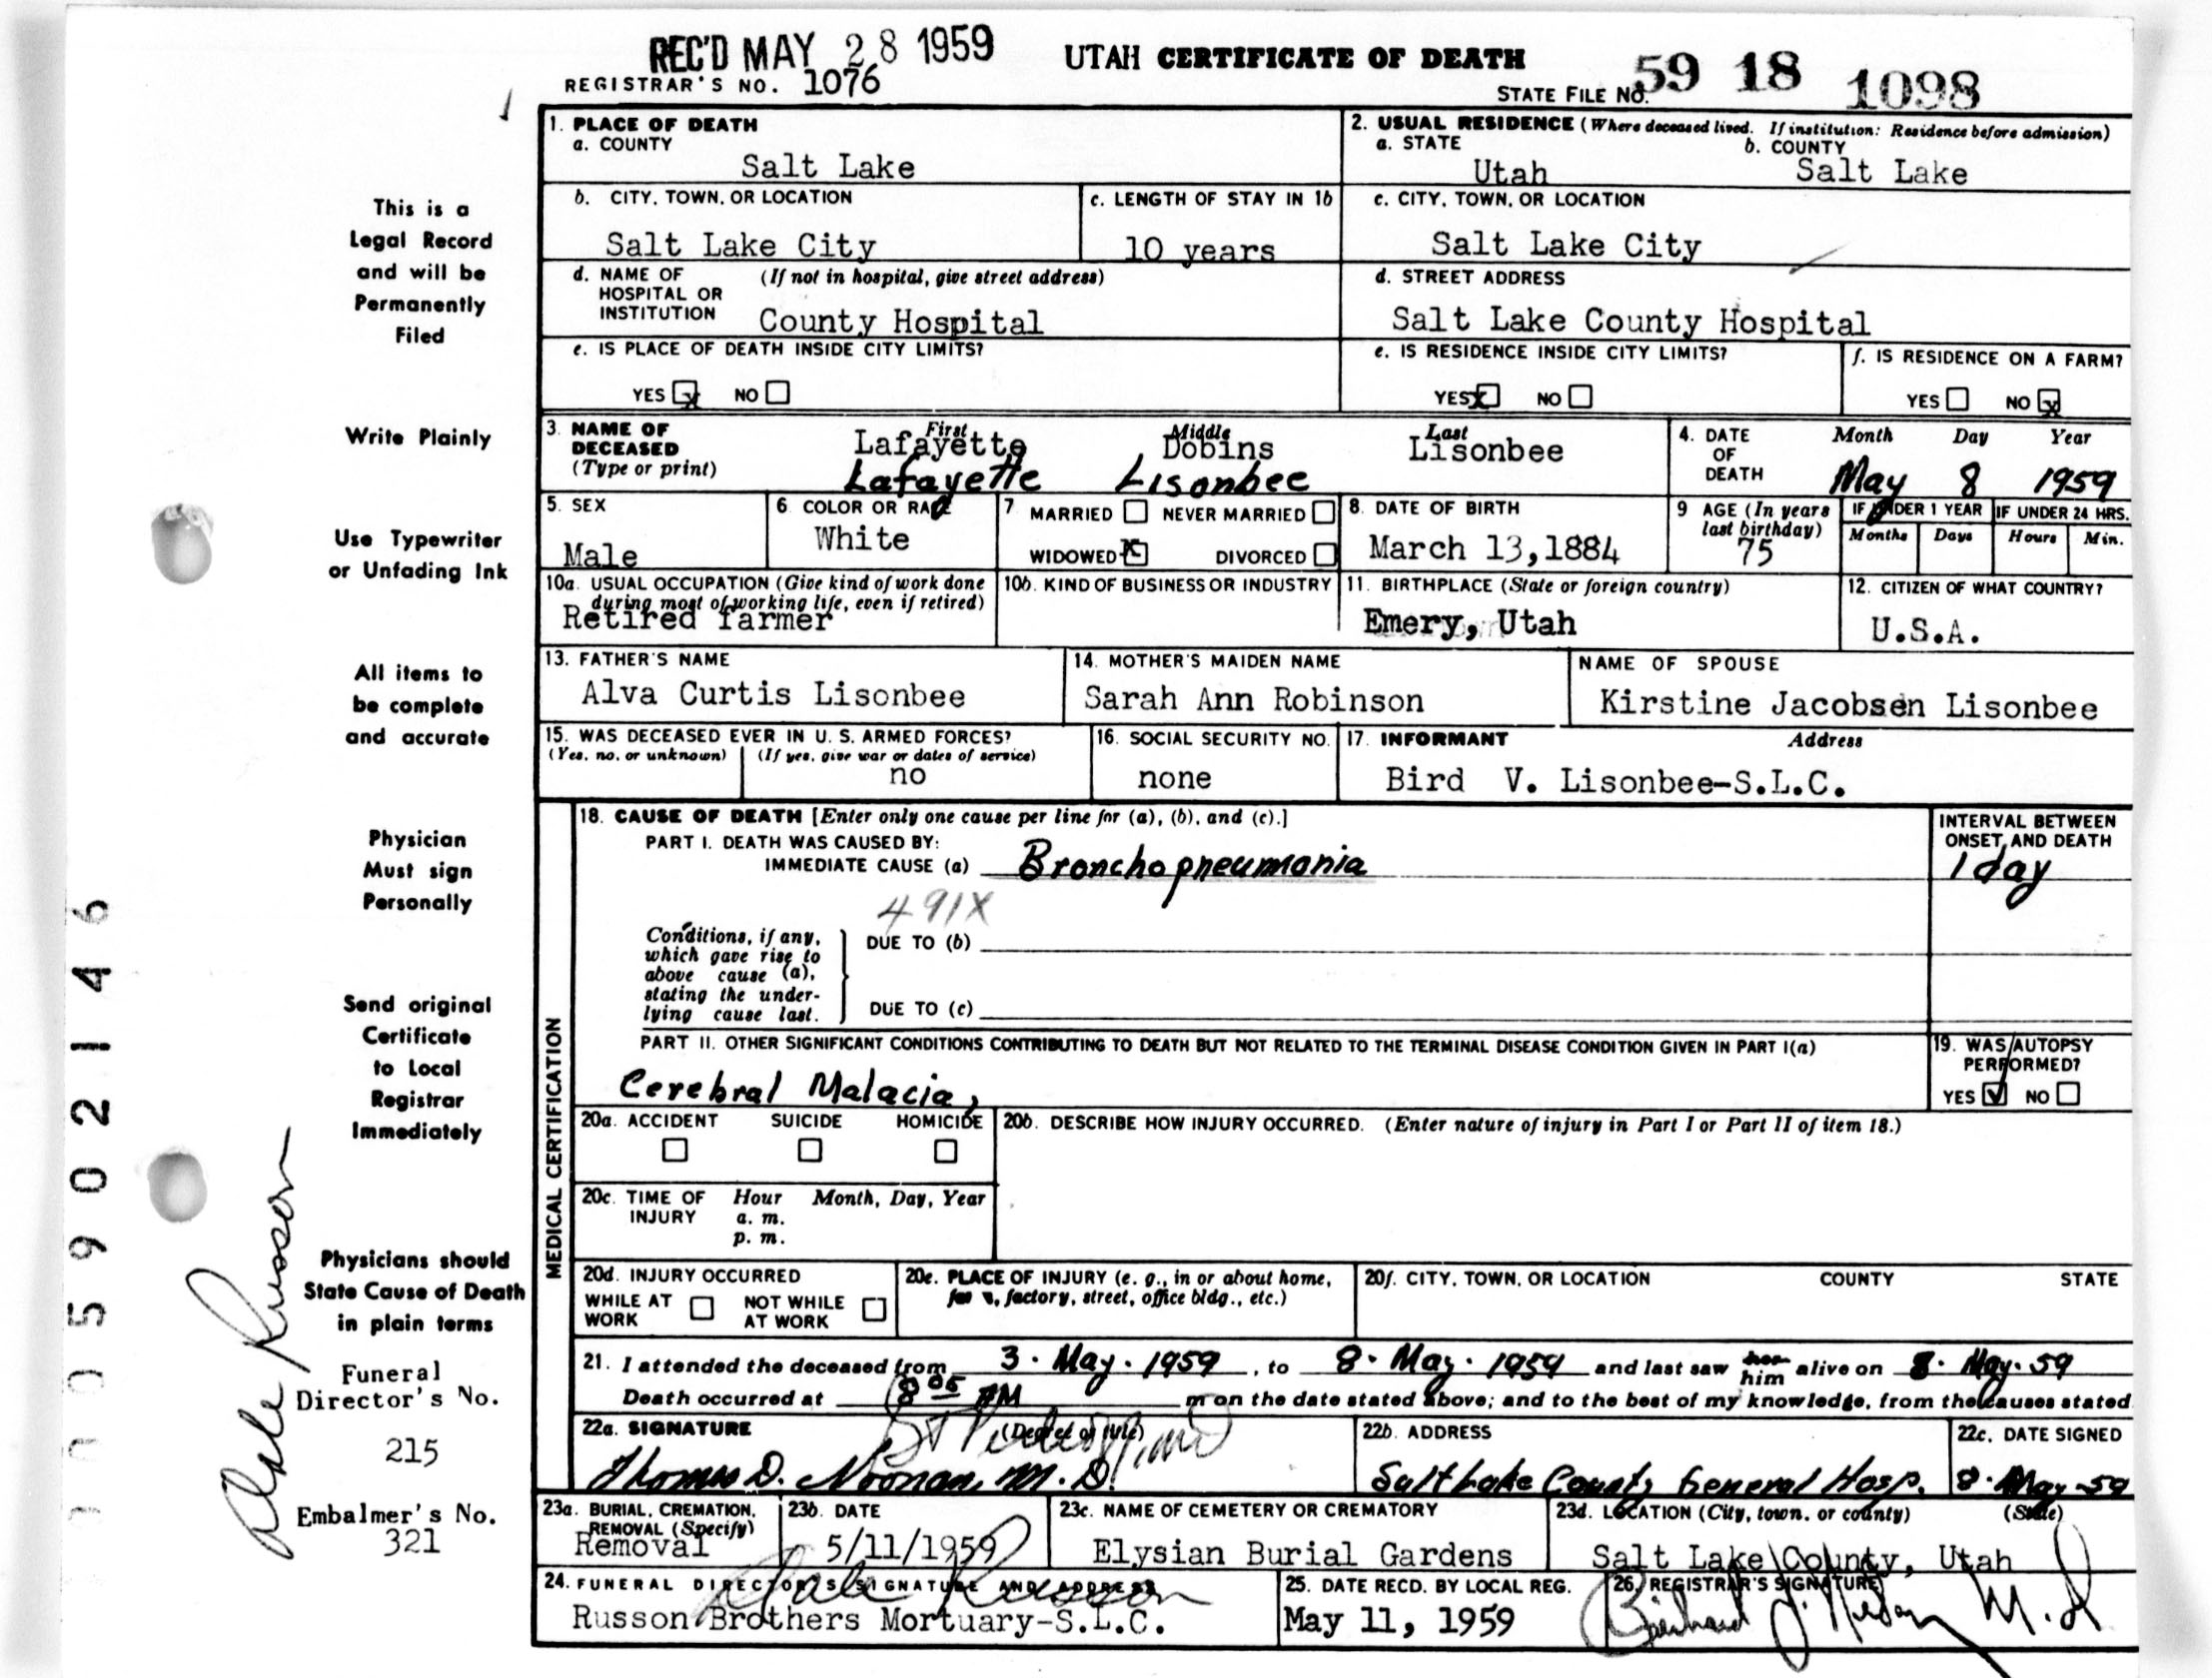 REC'D MAY 28 1959
UTAH CERTIFICATE OF DEATH
REGISTRAR'S NO. 1076
STATE FILE NO. 59 18 1098
1. PLACE OF DEATH
a. COUNTY
Salt Lake
2. USUAL RESIDENCE (Where deceased lived. If institution: Residence before admission)
a. STATE
Utah
b. COUNTY
Salt Lake
b. CITY, TOWN, OR LOCATION
Salt Lake City
c. LENGTH OF STAY IN 1b
10 years
c. CITY, TOWN, OR LOCATION
Salt Lake City
d. NAME OF HOSPITAL OR INSTITUTION
(If not in hospital, give street address)
County Hospital
d. STREET ADDRESS
Salt Lake County Hospital
e. IS PLACE OF DEATH INSIDE CITY LIMITS?
YES x NO
e. IS RESIDENCE INSIDE CITY LIMITS?
YES x NO
f. IS RESIDENCE ON A FARM?
YES NO x
3. NAME OF DECEASED (Type or print)
First Middle Last
Lafayette Dobins Lisonbee
Lafayette Lisonbee
4. DATE OF DEATH
Month Day Year
May 8 1959
5. SEX
Male
6 COLOR OR RACE
White
7 MARRIED NEVER MARRIED
WIDOWED x DIVORCED
8. DATE OF BIRTH
March 13,1884
9 AGE (In years last birthday)
75
IF UNDER 1 YEAR
Months Days
IF UNDER 24 HRS.
Hours Min.
10a. USUAL OCCUPATION (Give kind of work done during most of working life, even if retired)
Retired farmer
10b. KIND OF BUSINESS OR INDUSTRY
11. BIRTHPLACE (State or foreign country)
Emery, Utah
12. CITIZEN OF WHAT COUNTRY?
U.S.A.
13. FATHER'S NAME
Alva Curtis Lisonbee
14. MOTHER'S MAIDEN NAME
Sarah Ann Robinson
NAME OF SPOUSE
Kirstine Jacobsen Lisonbee
15. WAS DECEASED EVER IN U. S. ARMED FORCES?
(Yes, no, or unknown) (If yes, give war or dates of service)
no
16. SOCIAL SECURITY NO.
none
17. INFORMANT Address
Bird V. Lisonbee-S.L.C.
MEDICAL CERTIFICATION
18. CAUSE OF DEATH [Enter only one cause per line for (a), (b), and (c).]
PART I. DEATH WAS CAUSED BY:
IMMEDIATE CAUSE (a) Bronchopneumonia
INTERVAL BETWEEN ONSET AND DEATH
1 day
491X
Conditions, if any, which gave rise to above cause (a), stating the underlying cause last.
DUE TO (b)
DUE TO (c)
PART II. OTHER SIGNIFICANT CONDITIONS CONTRIBUTING TO DEATH BUT NOT RELATED TO THE TERMINAL DISEASE CONDITION GIVEN IN PART I(a)
Cerebral Malacia,
19. WAS AUTOPSY PERFORMED?
YES ✓ NO
20a. ACCIDENT SUICIDE HOMICIDE
20b. DESCRIBE HOW INJURY OCCURRED. (Enter nature of injury in Part I or Part II of item 18.)
20c. TIME OF INJURY
Hour Month, Day, Year
a. m.
p. m.
20d. INJURY OCCURRED
WHILE AT WORK NOT WHILE AT WORK
20e. PLACE OF INJURY (e. g., in or about home, farm, factory, street, office bldg., etc.)
20f. CITY, TOWN, OR LOCATION COUNTY STATE
21. I attended the deceased from 3. May. 1959, to 8. May. 1959 and last saw her him alive on 8. May. 59
Death occurred at 8 05 AM m on the date stated above; and to the best of my knowledge, from the causes stated
22a. SIGNATURE (Degree or title)
Thomas D. Noonan, M.D.
22b. ADDRESS
Salt Lake County General Hosp.
22c. DATE SIGNED
8. May 59
23a. BURIAL, CREMATION, REMOVAL (Specify)
Removal
23b. DATE
5/11/1959
23c. NAME OF CEMETERY OR CREMATORY
Elysian Burial Gardens
23d. LOCATION (City, town, or county) (State)
Salt Lake County, Utah
24. FUNERAL DIRECTOR'S SIGNATURE AND ADDRESS
Dale Russon
Russon Brothers Mortuary-S.L.C.
25. DATE RECD. BY LOCAL REG.
May 11, 1959
26. REGISTRAR'S SIGNATURE
M.D
This is a
Legal Record
and will be
Permanently
Filed
Write Plainly
Use Typewriter
or Unfading Ink
All items to
be complete
and accurate
Physician
Must sign
Personally
Send original
Certificate
to Local
Registrar
Immediately
Physicians should
State Cause of Death
in plain terms
Funeral
Director's No.
215
Embalmer's No.
321
Dale Russon
0005902146